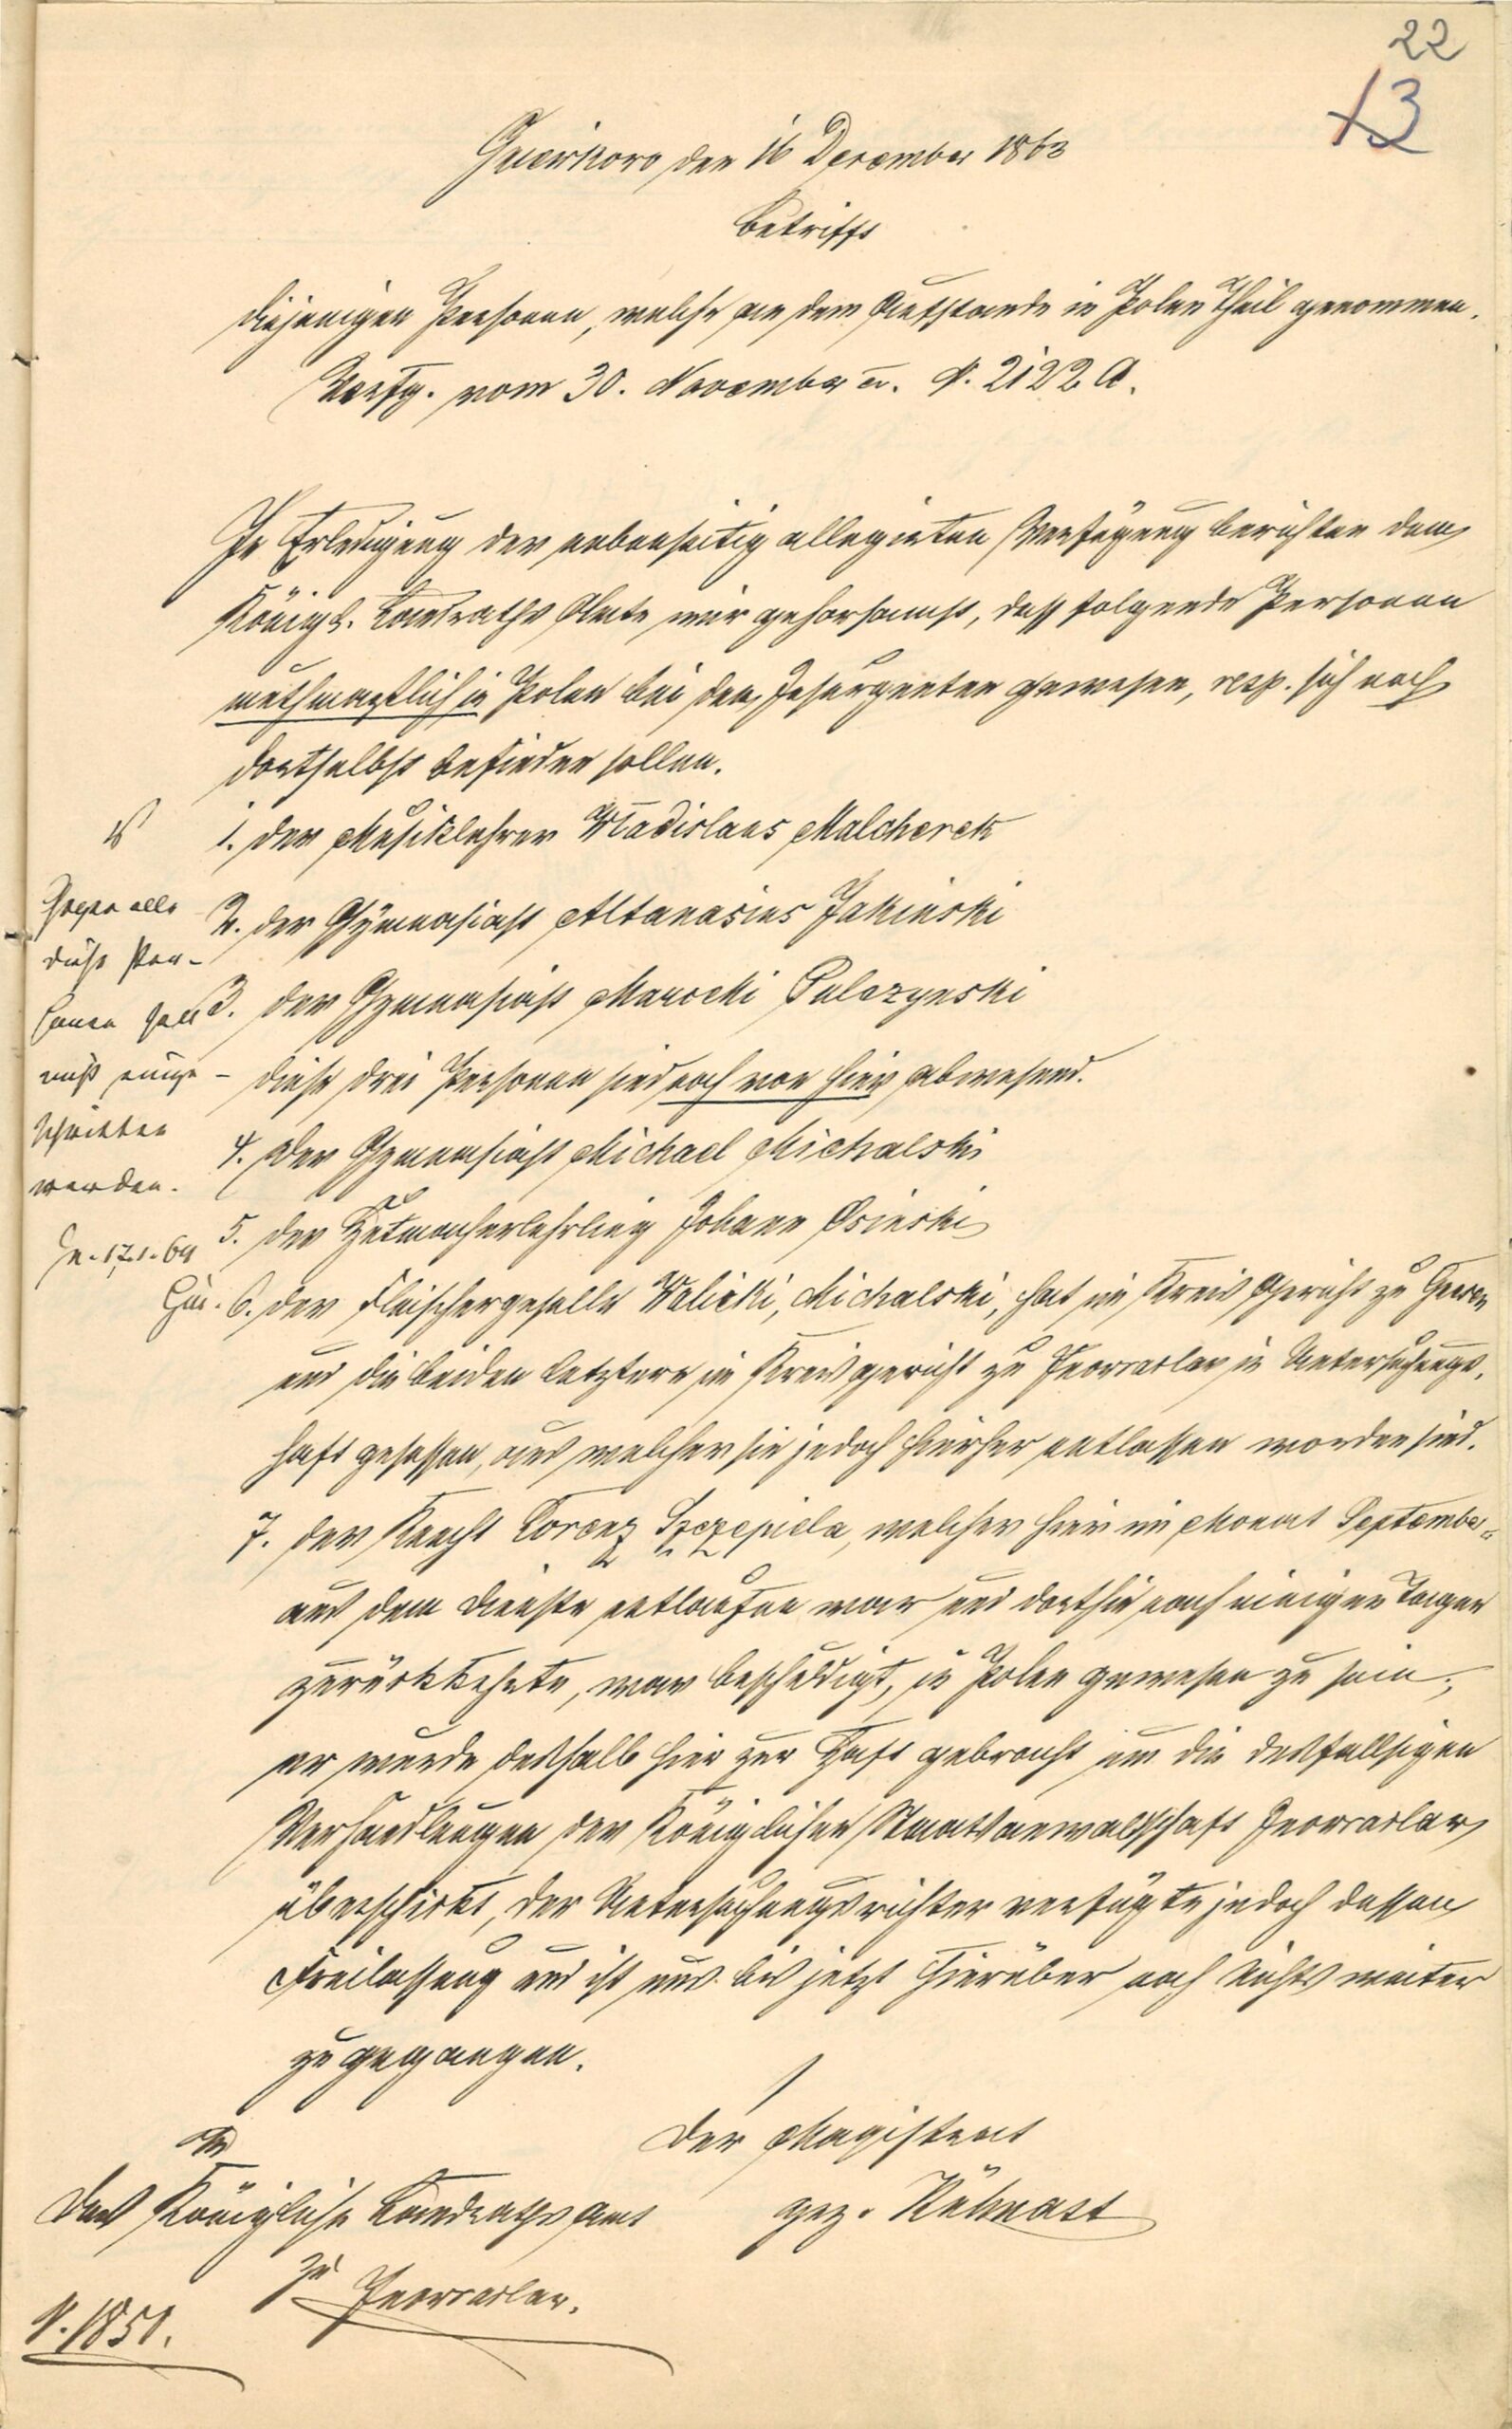 22
13
Gniewkowo den 16 December 1863
Betrifft
diejenigen Personen, welche an dem Aufstande in Polen Theil genommen.
Verfg. vom 30. November cr. N. 2122 A.
In Erledigung der nebenseitig allegirten Verfügung berichten dem
Königl. Landraths Amte wir gehorsamst, daß folgende Personen
muthmaßlich in Polen bei den Insurgenten gewesen, resp. sich noch
dortselbst befinden sollen.
1. der Musiklehrer Wladislaus Malcherek
2. der Gymnasiast Attanasius Jakinski
3. der Gymnasiast Marocki Pulczynski
diese drei Personen sind noch von hier abwesend.
4. der Gymnasiast Michael Michalski
5. der Hutmacherlehrling Johann Osinski
6. der Fleischergeselle Walicki, Michalski, hat im Kreis Gericht zu
und die beiden letztern im Kreisgericht zu Inowraclaw in Untersuchungs-
haft gesessen, aus welcher sie jedoch hierher entlassen worden sind.
7. der Knecht Lorenz Szczepiela, welcher hier im Monat September
aus dem Dienste entlaufen war und dorthin nach einigen Tagen
zurückkehrte, war beschuldigt, in Polen gewesen zu sein,
er wurde deshalb hier zur Haft gebracht und die desfallsigen
Verhandlungen der Königlichen Staatsanwaltschaft Inowraclaw
überschickt, der Untersuchungsrichter verfügte jedoch dessen
Freilassung und ist uns bis jetzt hierüber noch nichts weiter
zugegangen.
Der Magistrat
gez. Kühnast
An
das Königliche Landraths Amt
zu Inowraclaw.
N. 1851.
Gegen alle
diese Per-
sonen
muß einge-
schritten
werden.
In. 17.1.64